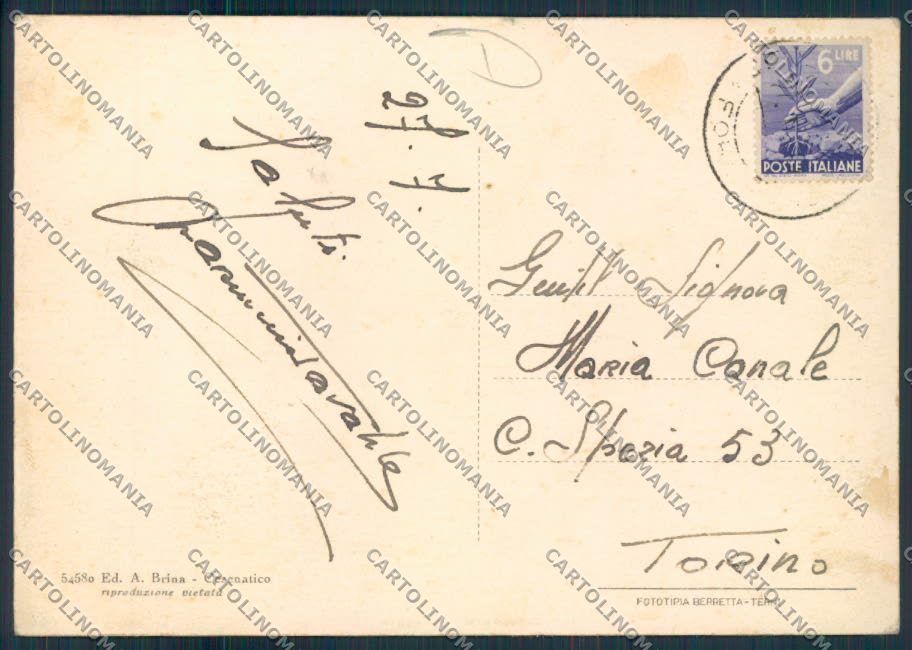 D
27. 7.
Saluti.
6 LIRE
POSTE ITALIANE
Gentil Signora
Maria Canale
C. Spezia 53
Torino
54580 Ed. A. Brina - Cesenatico
riproduzione vietata
FOTOTIPIA BERRETTA - TERNI
CARTOLINOMANIA